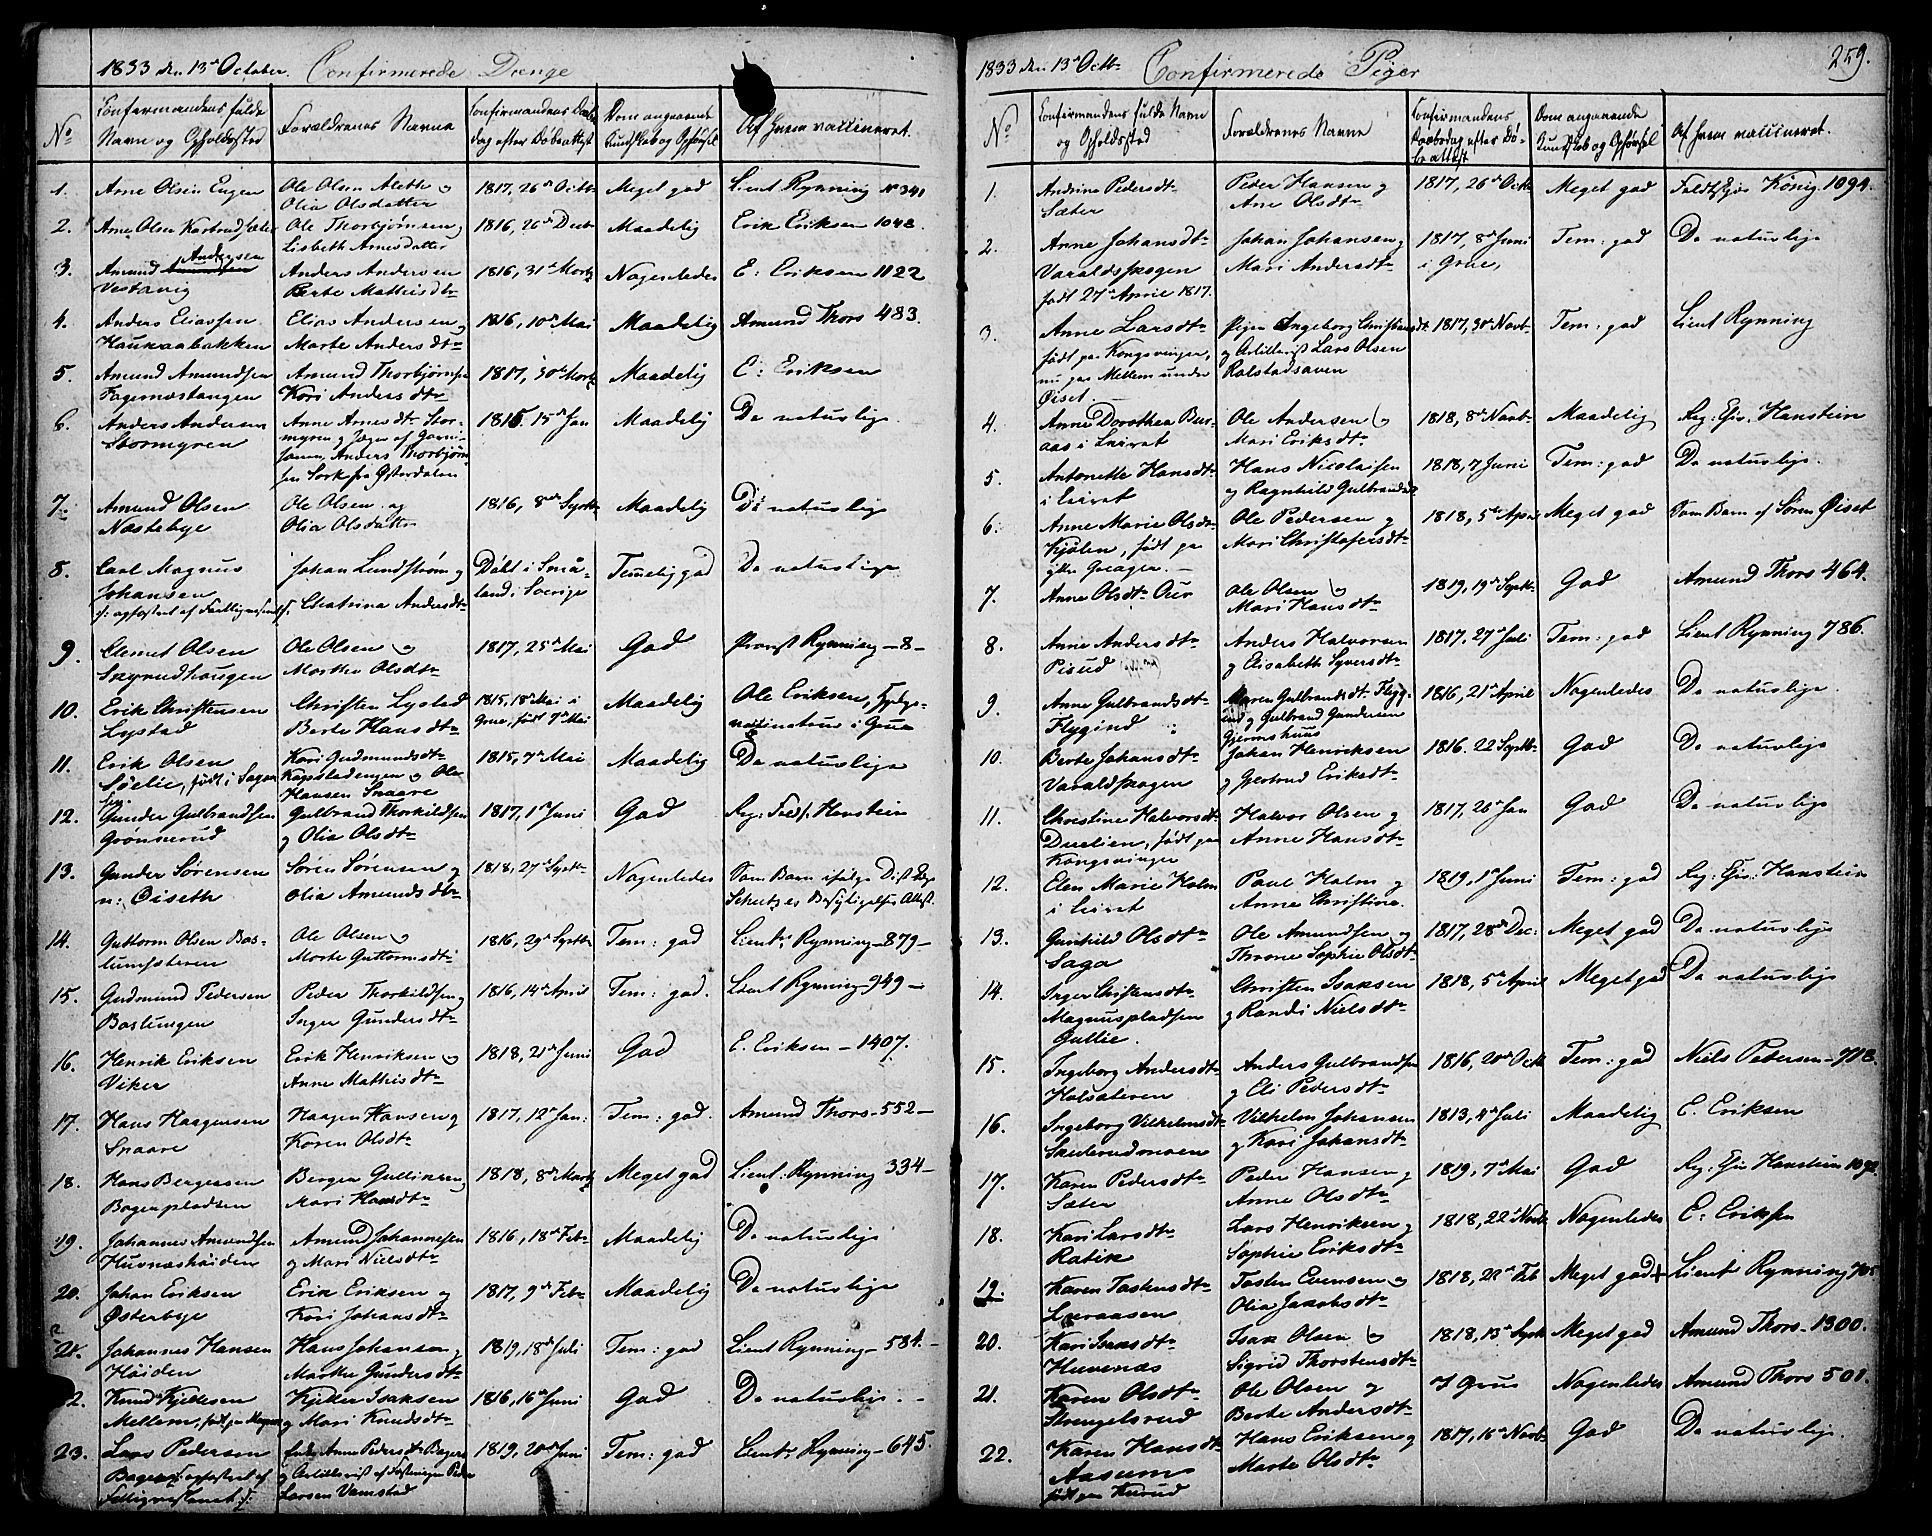 1833 den 13de October. Confirmerede Drenge
No
Confirmandens fulde Navn og Opholdssted
Forældrenes Navne
Confirmandens Daabsdag efter Døbeattest
Dom angaaende Kundskab og Opførsel
Af hvem vaccineret.
1. Arne Olsen Eugen
Ole Olsen og Olia Olsdatter
1817, 26de Octbr
Meget god
Lieut Rynning No 341
2. Arne Olsen
Ole Thorbjørnsen og Lisbeth Arnesdatter
1816, 26de Decbr
Maadelig
Erik Eriksen 1048
3. Amund Andersen
Anders Andersen Berte Mathisdtr
1816, 31te Marts
Nogenledes
E: Eriksen 1122
4. Anders Eliassen Haukaabakken
Elias Andersen og Marte Andersdtr
1816, 10de Mai
Maadelig
Amund Thors 483.
5. Amund Amundsen Fagernæstangen
Amund Thorbjørnsen Kari Andersdtr
1817, 30te Marts
Maadelig
E: Eriksen
6. Anders Andersen Stormyren
Anne Arnesdtr Stormyren og Anders Thorbjørnsen fra Østerdalen
1815. 15de Jan
Maadelig
De naturlige
7. Amund Olsen Næstebye
Ole Olsen og Olia Olsdatter
1816, 8de Septbr
Maadelig
De naturlige
8. Carl Magnus Johansen
Johan Lundstrøm og Chatrina Andersdtr
Døbt i Småland i Sverige
Temelig god
De naturlige
9. Clemet Olsen
Ole Olsen og Marthe Olsdtr
1817, 25de Mai
God
Provst Rynning - 8 -
10. Erik Christensen Lystad
Christen Lystad Berte Hansdtr
1815, 18de Mai i Grue, født 7de Mai
Maadelig
Ole Eriksen, Hjelpevaccinatør i Grue
11. Erik Olsen Sølie, født i Sagen
Kari Gudmundsdtr og Ole Hansen Snaare
1815, 7de Mai
Maadelig
De naturlige
12. Gunder Gulbrandsen Grønnerud
Gulbrand Thorkildsen og Olia Olsdtr
1817, 1ste Juni
God
Reg: Feldsk. Hanstein
13. Gunder Sørensen n: Øiseth
Søren Sørensen og Olia Amundsdtr
1818, 27de Septbr
Nogenledes
Som Barn ifølge Dist Læge Schutzes Besigtigelses Attest.
14. Guttorm Olsen Baslumsæteren
Ole Olsen og Marte Guttormsdtr
1816, 29de Septbr
Tem: god
Lieut: Rynning - 879 -
15. Gudmund Pedersen Baslungen
Peder Thorkildsen og Inger Gundersdtr
1816, 14de April
Tem: god.
Lieut Rynning 949 -
16. Henrik Eriksen Viker
Erik Henriksen og Anne Mathisdtr
1818, 21de Juni
God
E. Eriksen - 1407.
17. Hans Haagensen Snaare
Haagen Hansen og Karen Olsdtr
1817, 12te Jan:
Tem: god.
Amund Thors - 552 -
18. Hans Bergersen Bagerpladsen
Berger Gulliksen og Mari Hansdtr
1818, 8de Marts
Meget god
Lieut: Rynning 334 -
19. Johannes Amundsen Huvnæshøiden
Amund Johannessen og Mari Nielsdtr
1816, 18de Febr
Maadelig
De naturlige
20. Johan Eriksen Østerbye
Erik Eriksen og Kari Johansdtr
1817, 9de Febr
Maadelig
De naturlige
21. Johannes Hansen Høiden
Hans Johansen og Marthe Gundersdtr
1819, 18de Juli
Tem: god
Lieut Rynning - 584. -
2. Knud Kjeldsen Mellem
Kjeld Isaksen og Mari Knudsdtr
1816, 16de Juni
God
De naturlige -
23. Lars Pedersen
Anne Pedersdtr og Artillerist af Peder Larsen Vamstad
1819, 20de Juni
Tem: god
Lieut: Rynning - 645.
1833 den 13de Octbr Confirmerede Piger
259.
No
Confirmandens fulde Navn og Opholdssted
Forældrenes Navne
Confirmandens Daabsdag efter Døbeattest
Dom angaaende Kundskab og Opførsel
Af hvem vaccineret.
1. Andrine Pedersdtr Sæter
Peder Hansen og Anne Olsdtr
1817, 26de Octbr
Meget god
König 1094.
2. Anne Johansdtr Varaldskogen født 27de April 1817.
Johan Johansen og Mari Andersdtr
1817, 8de Juni i Grue,
Tem: god
De naturlige
3. Anne Larsdtr født paa Kongsvinger, nu paa Mellem under Øiset -
Pigen Ingeborg Christiansdtr og Artillerist Lars Olsen Rolstadsaven
1817, 30te Novbr
Tem: god
Lieut Rynning
4. Anne Dorothea Buraas i Leiret
Ole Andersen og Mari Eriksdtr
1818, 8de Novbr
Maadelig
Reg: Chir. Hanstein
5. Antonette Hansdtr i Leiret
Hans Nicolaisen og Ragnhild Gulbrandsdtr
1818, 7 Juni
Tem: god
De naturlige.
6. Anne Marie Olsdtr Kjølen, født paa
Ole Pedersen og Mari Christofersdtr
1818, 5te Apr
Meget god
Som Barn af Søren Øiset
7. Anne Olsdtr Our
Ole Olsen og Mari Hansdtr
1819, 19de Septbr
God
Amund Thors 464.
8. Anne Andersdtr Pisud
Anders Halvorsen og Elisabeth Syversdtr
1817. 27de Juli
Tem: god
Lieut Rynning 786.
9. Anne Gulbrandsdtr Flygind
Maren Gulbrandsdtr Flygind og Gulbrand Gundersen Gjermshuus
1816, 21de April
Nogenledes
De naturlige.
10. Berte Johansdtr Varaldskogen
Johan Henriksen og Gjertrud Eriksdtr
1816. 22 Septbr
God
De naturlige
11. Christine Halvorsdtr Duelien, født paa Kongsvinger
Halvor Olsen og Anne Hansdtr
1817, 26de Jan
God
De naturlige
12. Elen Marie Holm i Leiret
Paul Holm og Anne Christine.
1819, 1ste Juni
Tem: god
Reg: Chir: Hanstein
13. Gunhild Olsdtr Saga
Ole Amundsen og Throne Sophie Olsdtr
1817, 28de Dec:
Meget god
De naturlige
14. Inger Christensdtr Magnuspladsen Gullie.
Christen Isaksen og Randi Nielsdtr
1818, 5te April
Meget god
De naturlige
15. Ingeborg Andersdtr Holsæteren
Anders Gulbrandsen og Eli Pedersdtr
1816, 20de Octb
Tem: god
Niels Petersen - 713.
16. Ingeborg Vilhelmsdtr Skinderudmoen
Vilhelm Johansen og Kari Johansdtr
1813, 4de Juli
Maadelig
E. Eriksen
17. Karen Pedersdtr Sæter
Peder Hansen og Anne Olsdtr
1819, 7de Mai
God
Reg: Chir Hanstein 1092
18. Kari Larsdtr Ratik
Lars Henriksen og Sophie Eriksdtr
1818, 22de Novb
Nogenledes
E: Eriksen
19. Karen Tostensdtr Leeraasen
Tosten Evensen og Olia Jakobsdtr
1818, 22de Feb
Meget god
Lieut Rynning 705
20. Kari Isaksdtr Huvenæs
Isak Olsen og Sigrid Thorstensdtr
1818, 13de Septb
Meget god
Amund Thors - 1300.
21. Karen Olsdtr Strengelsrud
Ole Olsen og Berte Andersdtr
I Grue
Nogenledes
Amund Thors 501.
22. Karen Hansdtr Aasum født paa Kurud
Hans Eriksen og Marte Olsdtr
1817, 16de Novbr
God
De naturlige.